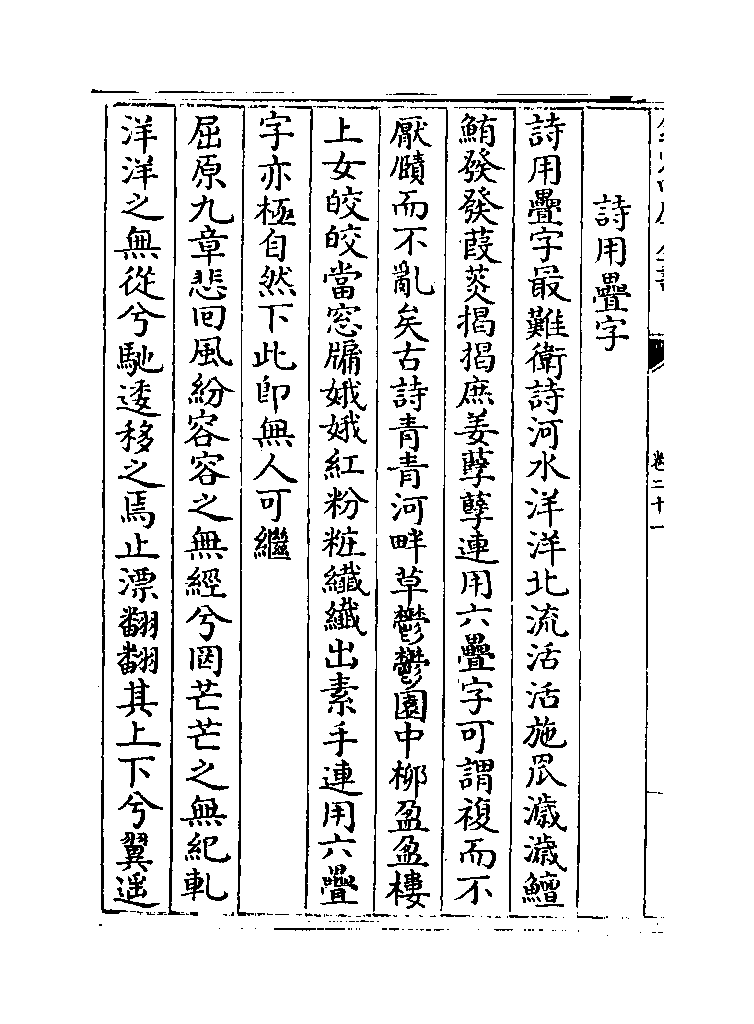 卷二十一
詩用疊字
詩用疊字最難衛詩河水洋洋北流活活施罛濊濊鱣
鮪發發葭菼揭揭庶姜孽孽連用六疊字可謂複而不
厭賾而不亂矣古詩青青河畔草鬱鬱園中柳盈盈樓
上女皎皎當窓牗娥娥紅粉粧纖纖出素手連用六疊
字亦極自然下此即無人可繼
屈原九章悲回風紛容容之無經兮罔芒芒之無紀軋
洋洋之無從兮馳逶移之焉止漂翻翻其上下兮翼遥